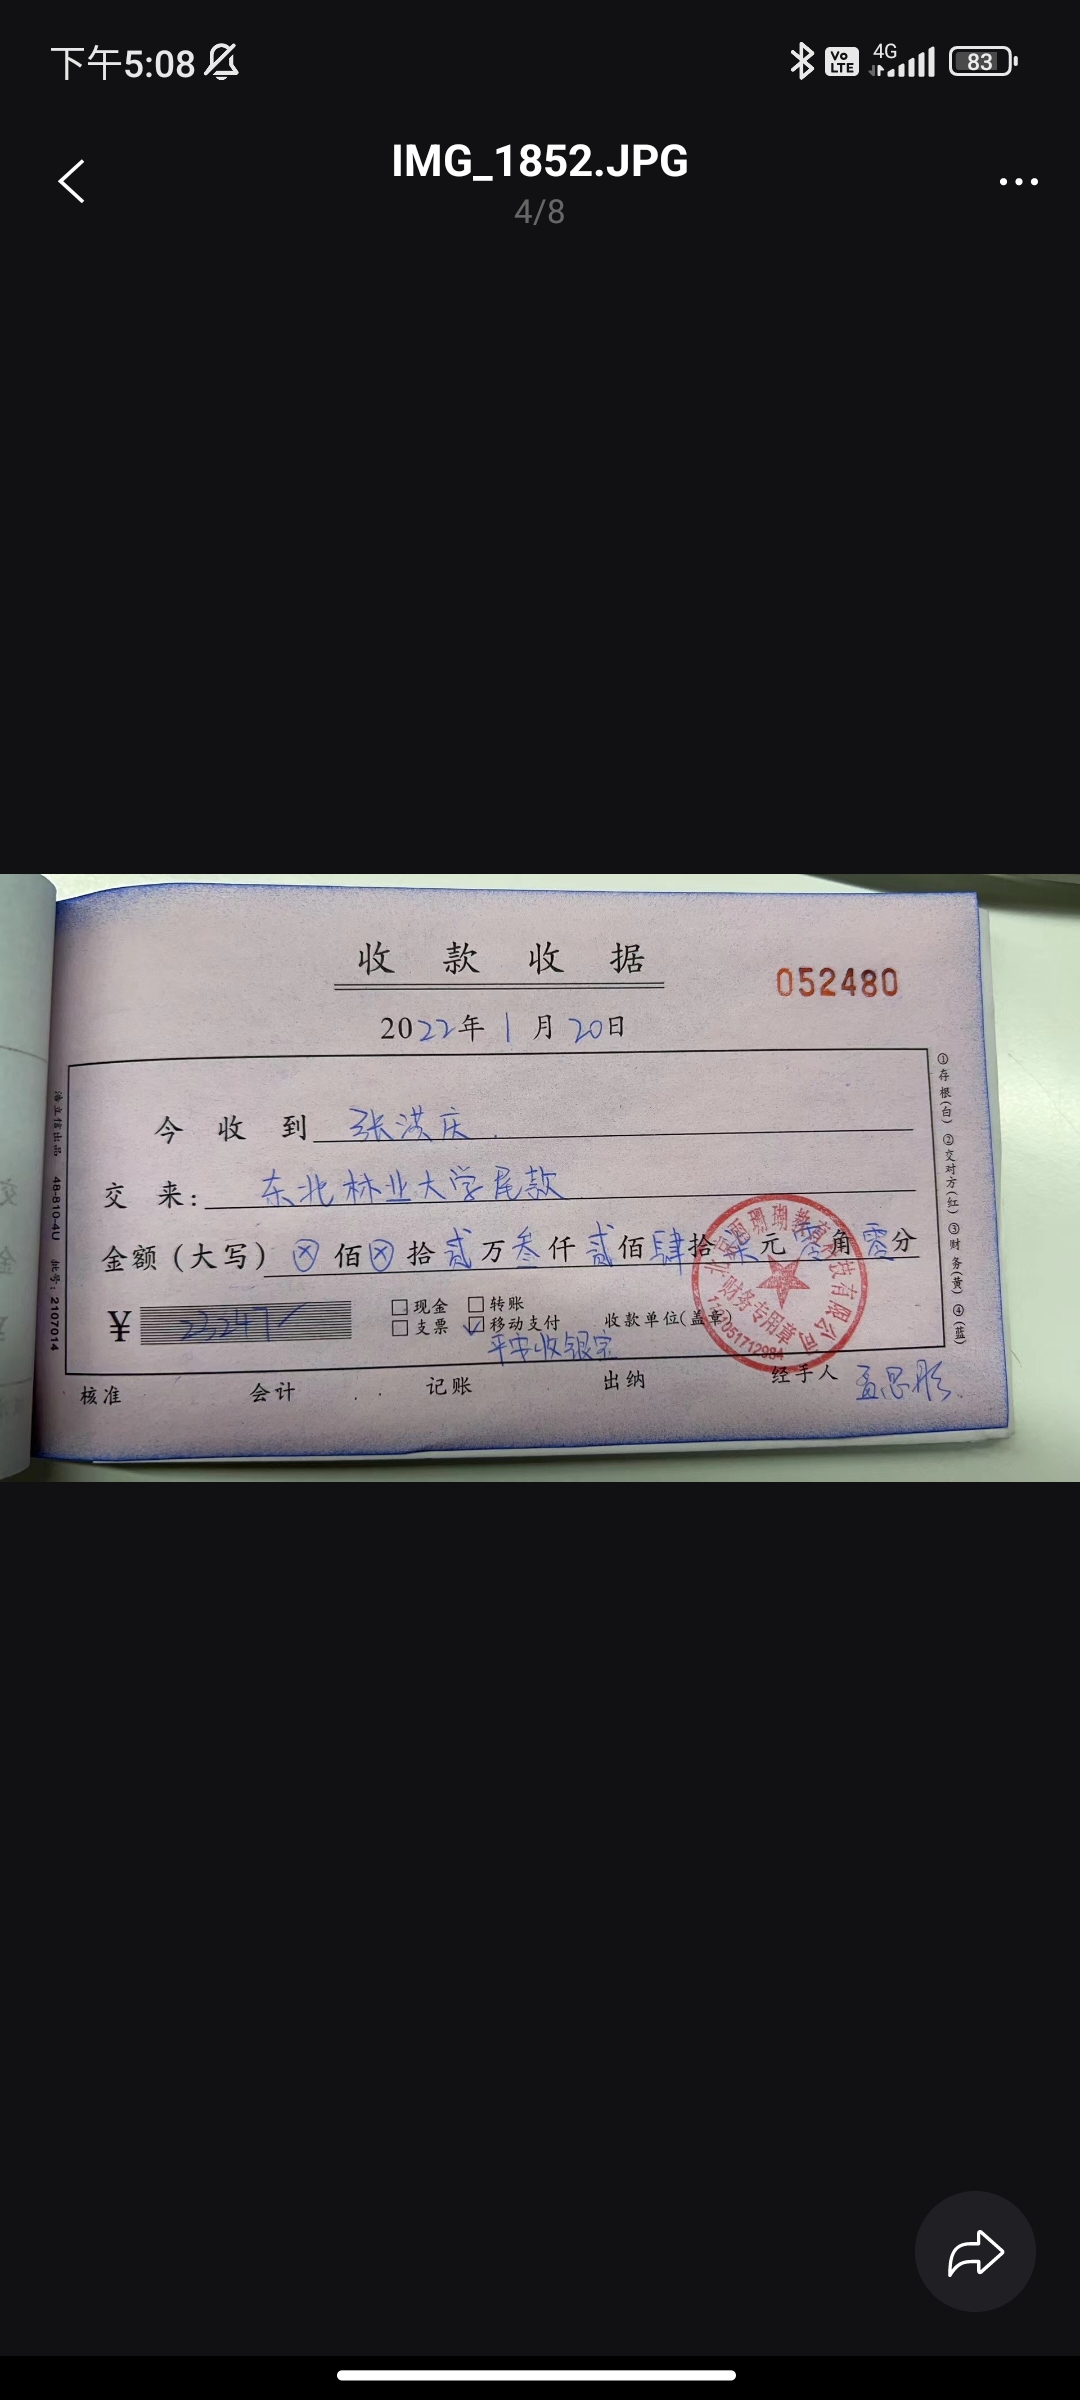 下午5:08
4G
VoLTE
83
IMG_1852.JPG
4/8
收款收据
052480
2022年1月20日
今收到 张洪庆
交来: 东北林业大学尾款
金额(大写) ⊗佰⊗拾贰万叁仟贰佰肆拾柒元零角零分
¥ 23247
□现金 □转账
□支票 ☑移动支付 收款单位(盖章)
平安收银宝
核准 会计 记账 出纳 经手人 孟思彤
①存根(白) ②交对方(红) ③财务(黄) ④(蓝)
浩立信出品 48-810-4U 批号: 2107014
珊瑚教育科技有限公司
财务专用章